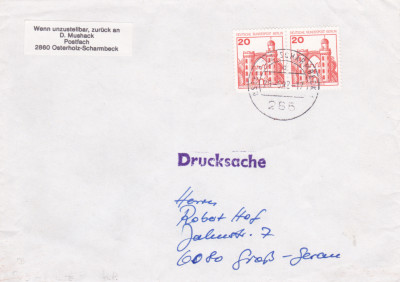 Wenn unzustellbar, zurück an
D. Mushack
Postfach
2860 Osterholz-Scharmbeck
DEUTSCHE BUNDESPOST BERLIN
20
DEUTSCHE BUNDESPOST BERLIN
20
286
Drucksache
Herrn
Robert Hof
Jahnstr. 7
6080 Groß-Gerau